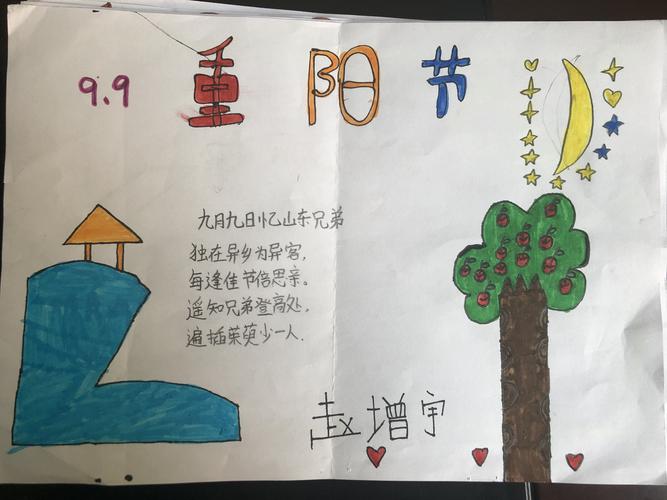 9.9 重阳节
九月九日忆山东兄弟
独在异乡为异客,
每逢佳节倍思亲。
遥知兄弟登高处,
遍插茱萸少一人.
赵增宇